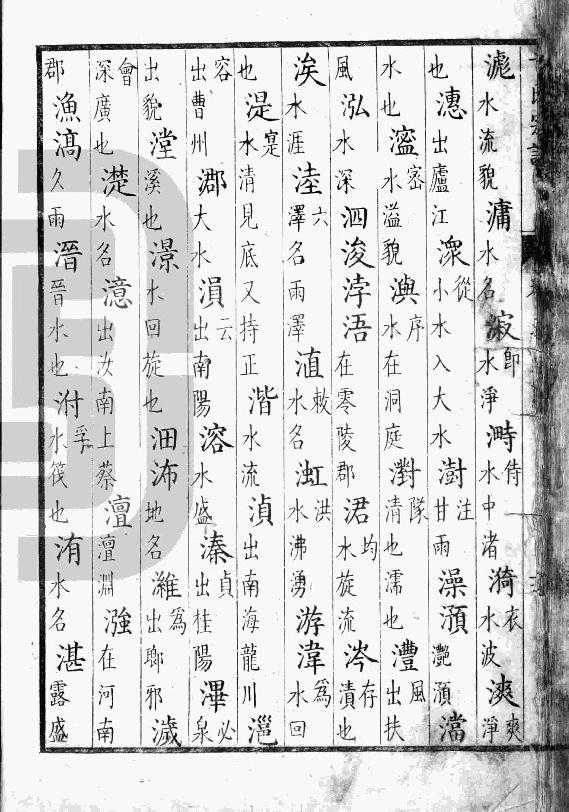 滮水流貌滽水名漃即水淨溡侍水中渚漪衣水波漺爽淨
也潓出廬江潀從小水入大水澍注甘雨澡澦灔澦澢
水也密水溢貌序水在洞庭濧隊清也濡也灃風出扶
風泓水深泗浚浡浯在零陵郡涒均水旋流涔存漬也
涘水涯淕六澤名雨澤淔敕水名洪水沸湧游湋為水回
也湜寔水清見底又持正湝水流湞出南海龍川
容出曹州大水溳云出南陽溶水盛溱貞出桂陽滭必泉
出貌漟溪也澋水回旋也沺地名濰為出瑯邪濊
會深廣也濋水名澺出汝南上蔡澶澶淵漒在河南
郡漁滈久雨溍晉水也泭孚水筏也洧水名湛露盛